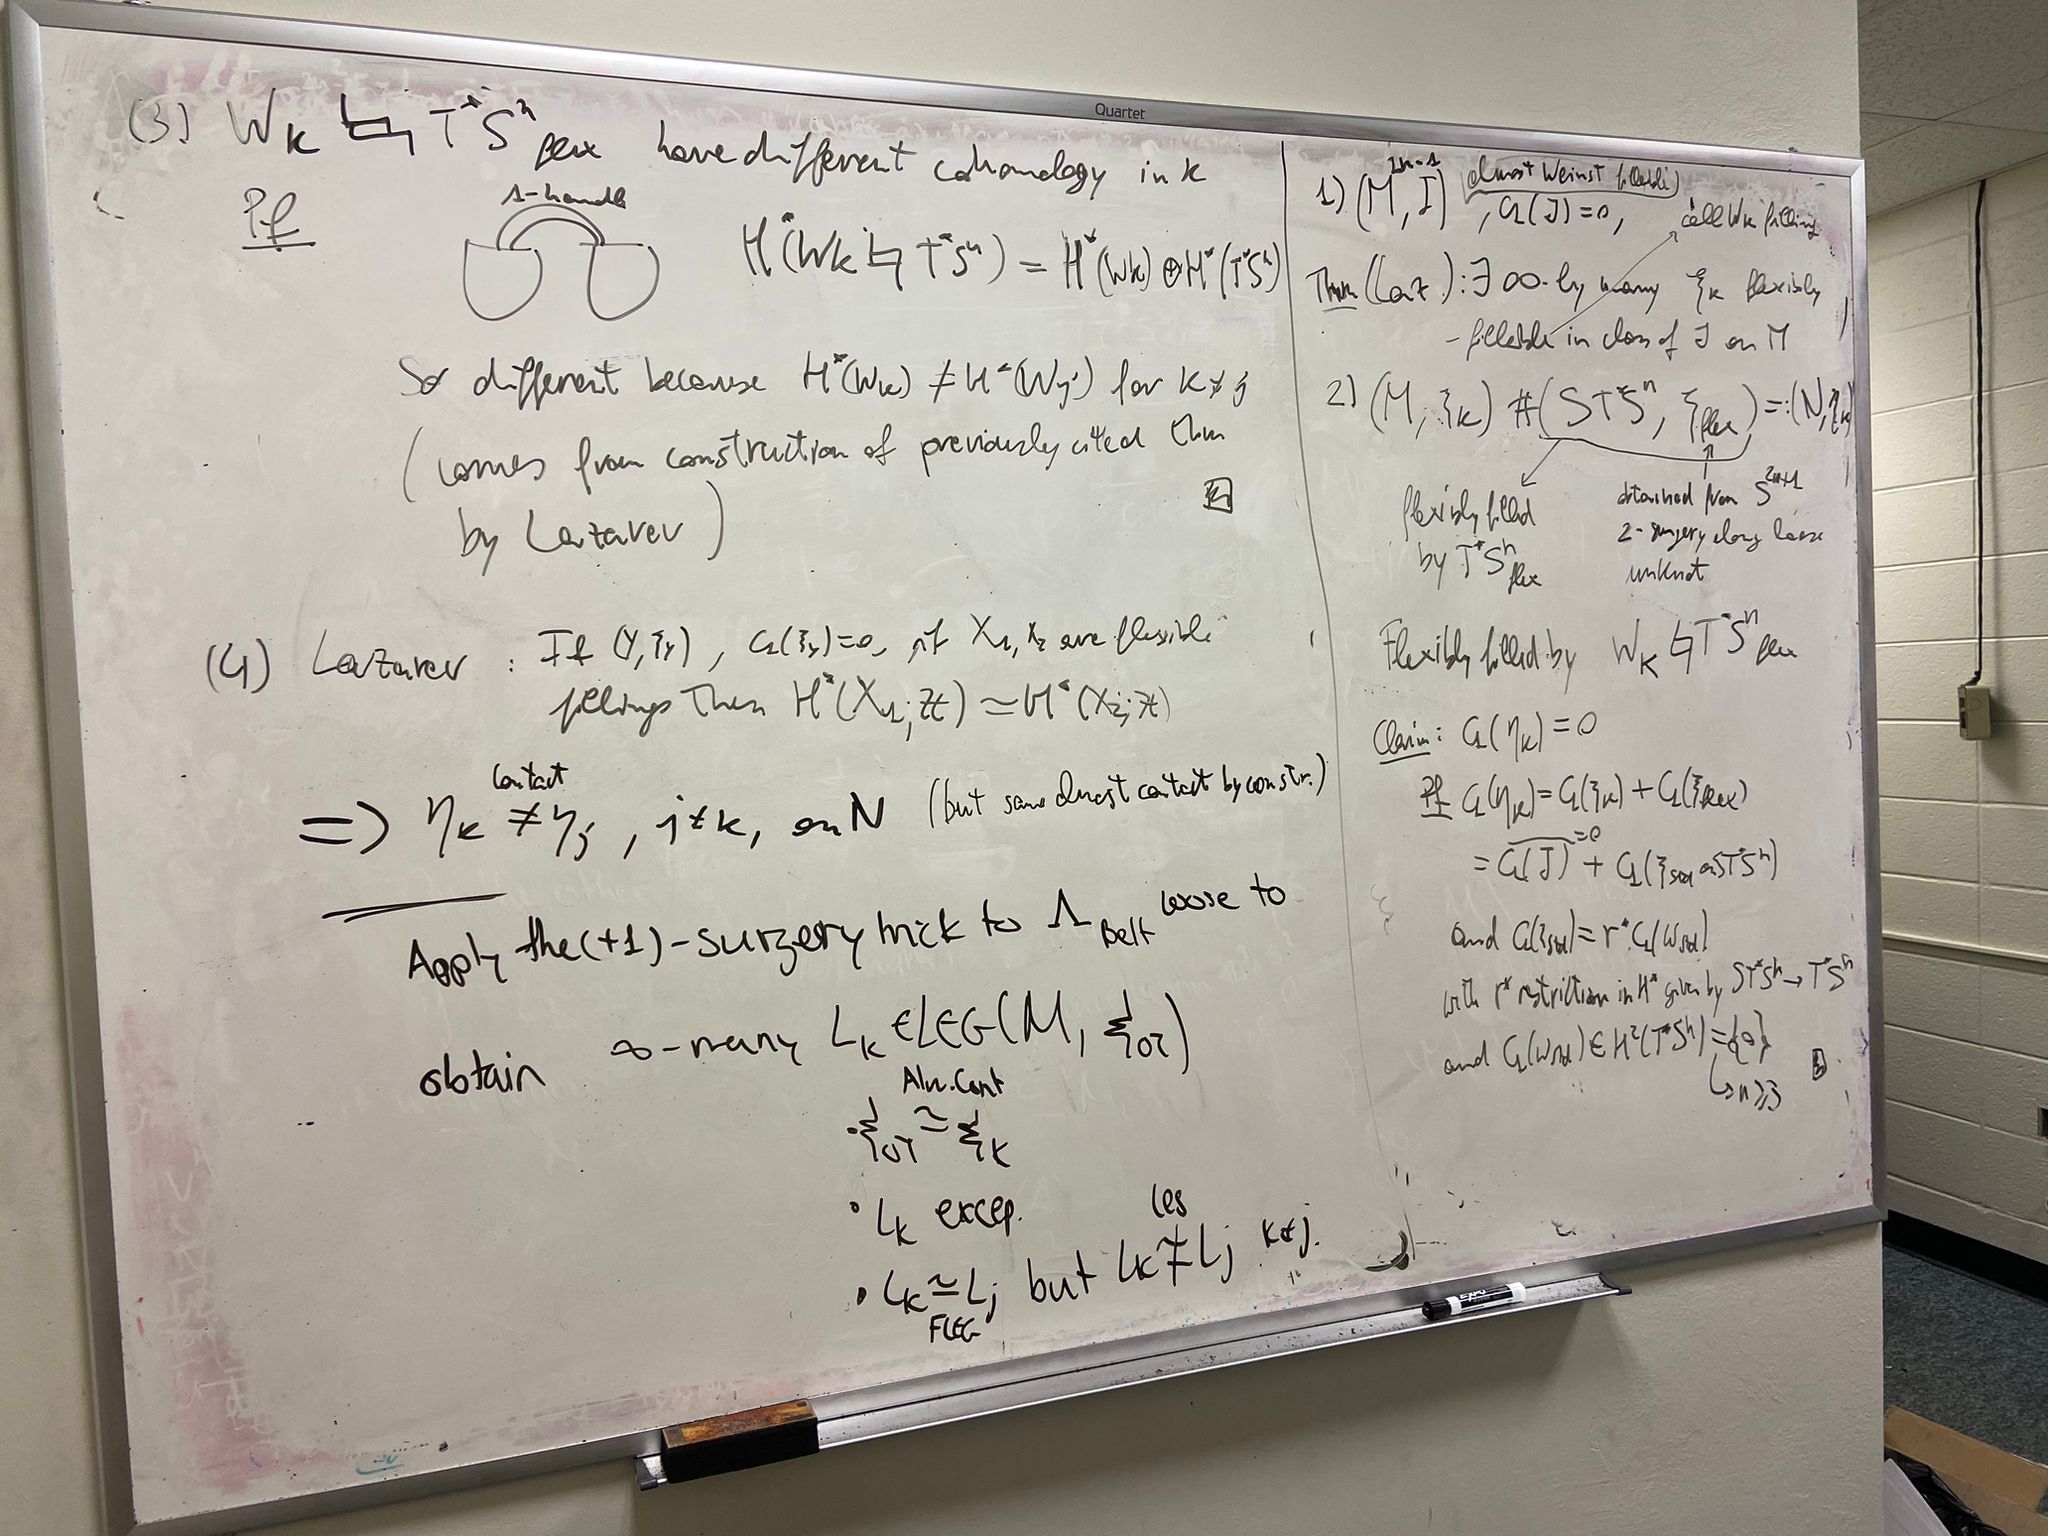 Quartet
(3) W_K ♮ T*S^n_flex have different cohomology in k
Pf
1-handle
H*(W_K ♮ T*S^n) = H*(W_K) ⊕ H*(T*S^n)
So different because H*(W_K) ≠ H*(W_j) for k ≠ j
(comes from construction of previously cited thm
by Lazarev)
(4) Lazarev : If (Y, ξ_Y), c_1(ξ_Y)=0, if X_1, X_2 are flexible
fillings then H*(X_1; ℤ) ≃ H*(X_2; ℤ)
contact
=> η_k ≠ η_j, j≠k, on N (but same almost contact by constr.)
Apply the (+1)-surgery trick to Λ_Belt loose to
obtain ∞-many L_K ∈ LEG(M, ξ_OT)
Alm. Cont
• ξ_OT ≃ ξ_K
• L_K excep.
• L_K ≃ L_j but L_K ≄ L_j k≠j.
FLEG
1) (M^{2n-1}, J) (almost Weinst fillable)
, c_1(J)=0,
call W_K filling
Thm (Laz.): ∃ ∞-ly many ξ_k flexibly
-fillable in class of J on M
2) (M, ξ_K) # (ST*S^n, ξ_flex) =: (N, η_K)
flexibly filled
by T*S^n_flex
obtained from S^{2n+1}
2-surgery along loose
unknot
Flexibly filled by W_K ♮ T*S^n_flex
Claim: c_1(η_K) = 0
Pf c_1(η_K) = c_1(ξ_K) + c_1(ξ_flex)
= c_1(J) + c_1(ξ_std on ST*S^n)
=0
and c_1(ξ_std) = r* c_1(ω_std)
with r* restriction in H* given by ST*S^n → T*S^n
and c_1(ω_std) ∈ H²(T*S^n) = {0}
↳ n≥3
EXPO